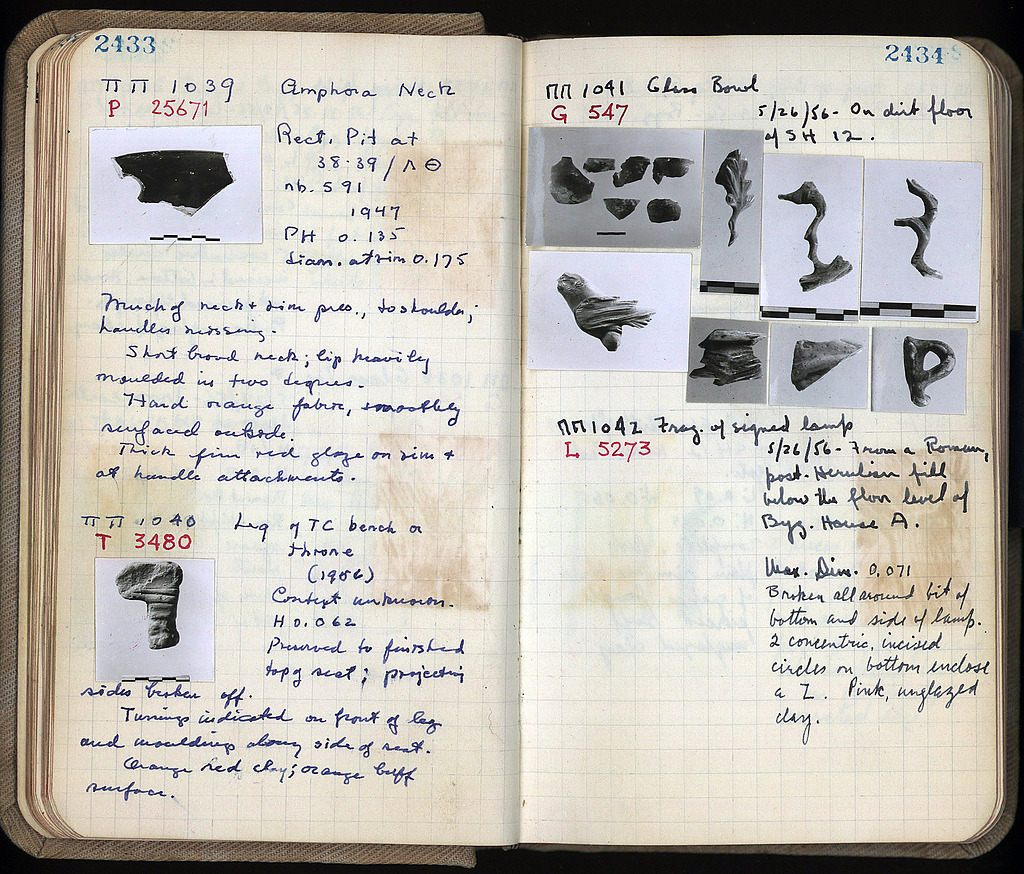 2433
ΠΠ 1039 Amphora Neck
P 25671
Rect. Pit at
38·39/Λ Θ
nb. 591
1947
PH 0.135
diam. at rim 0.175
Much of neck + rim pres., to shoulder;
handles missing.
Short broad neck; lip heavily
moulded in two degrees.
Hard orange fabric, smoothly
surfaced outside.
Thick firm red glaze on rim +
at handle attachments.
ΠΠ 1040 Leg of TC bench or
T 3480
throne
(1956)
Context unknown.
H 0.062
Preserved to finished
top of seat; projecting
sides broken off.
Turnings indicated on front of leg
and mouldings along side of seat.
Orange red clay; orange buff
surface.
2434
ΠΠ 1041 Glass Bowl
G 547
5/26/56 - On dirt floor
of SH 12.
ΠΠ 1042 Frag. of signed lamp
L 5273
5/26/56 - From a Roman,
post-Herulian fill
below the floor level of
Byz. House A.
Max. Dim. 0.071
Broken all around bit of
bottom and side of lamp.
2 concentric, incised
circles on bottom enclose
a Z. Pink, unglazed
clay.